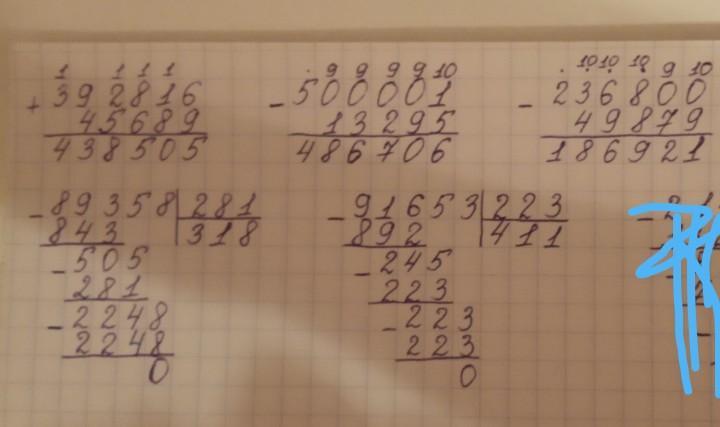 1 1 1 1
+ 392816
45689
438505
. 9 9 9 9 10
- 500001
13295
486706
. 10 10 10 9 10
- 236800
49879
186921
- 89358 | 281
843 | 318
- 505
281
- 2248
2248
0
- 91653 | 223
892 | 411
- 245
223
- 223
223
0